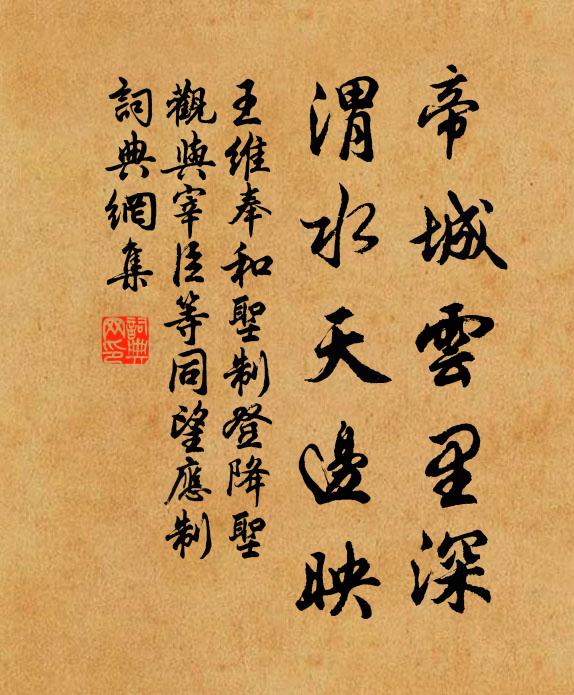 帝城雲里深
渭水天邊映
王維奉和聖制登降聖
觀與宰臣等同望應制
詞典網集
詞典网印